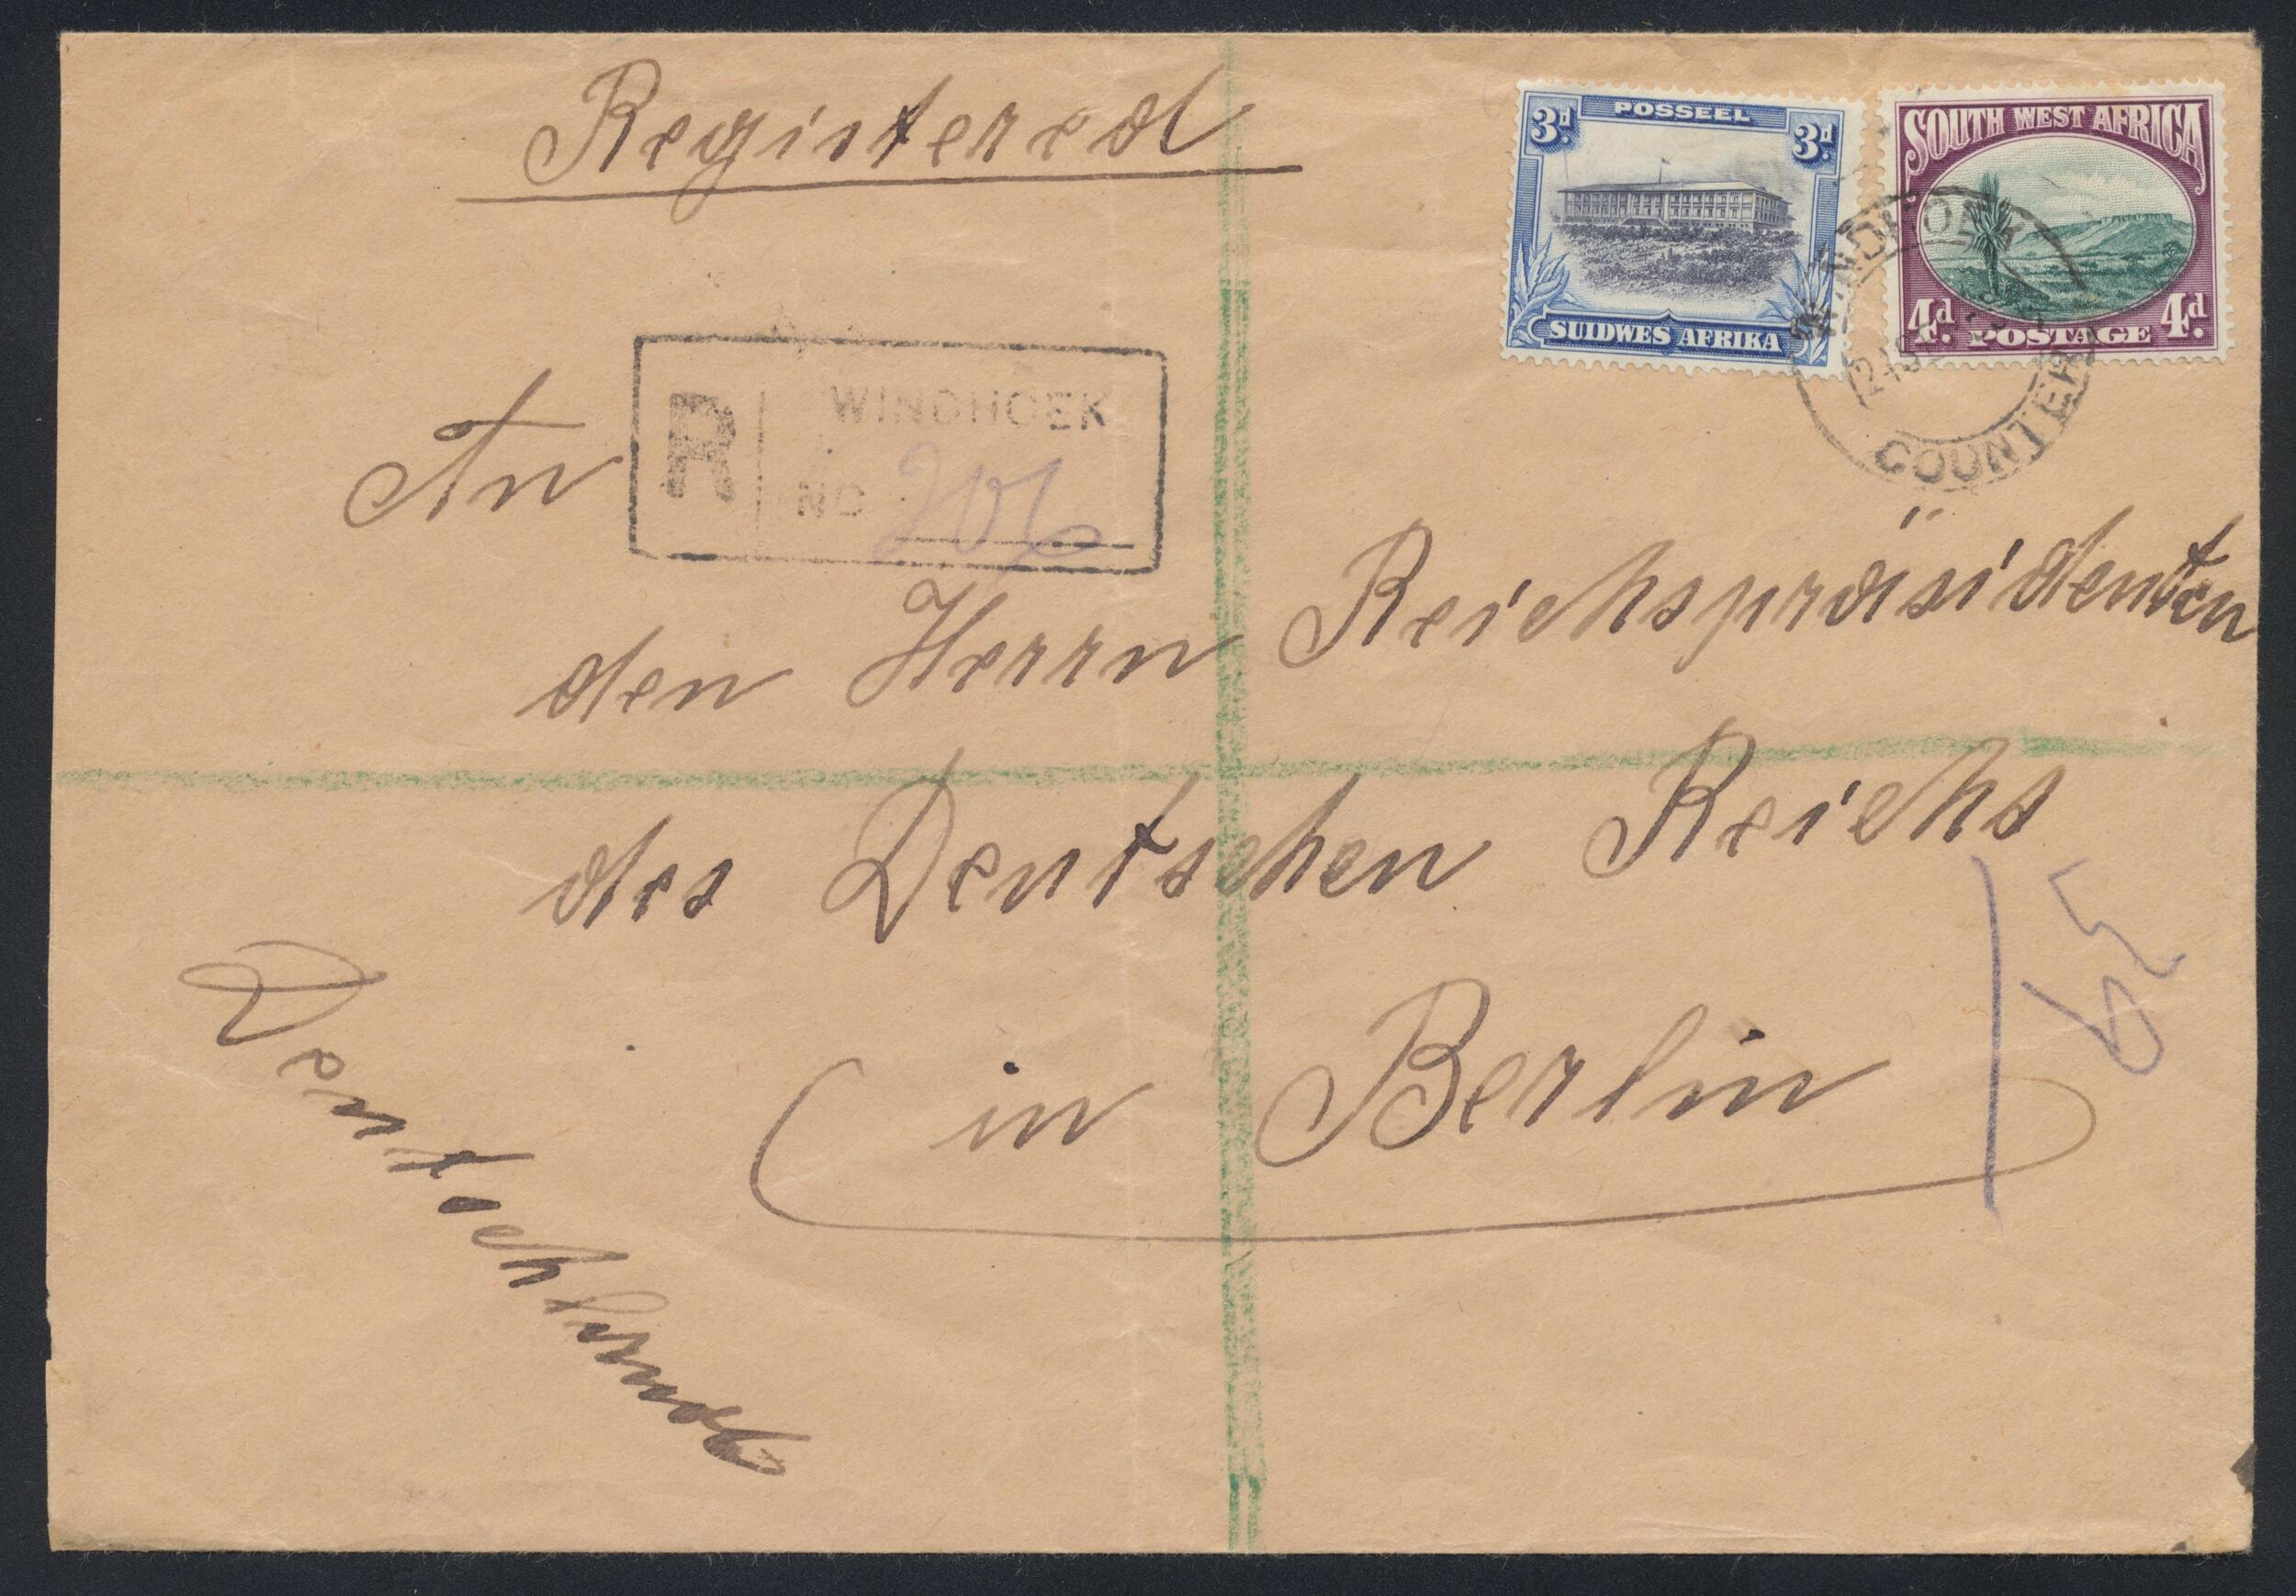 Registered
POSSEEL
3d. 3d.
SUIDWES AFRIKA
SOUTH WEST AFRICA
4d. POSTAGE 4d.
WINDHOEK
COUNTER
R WINDHOEK
NO 206
An
den Herrn Reichspräsidenten
des Deutschen Reichs
in Berlin
Deutschland